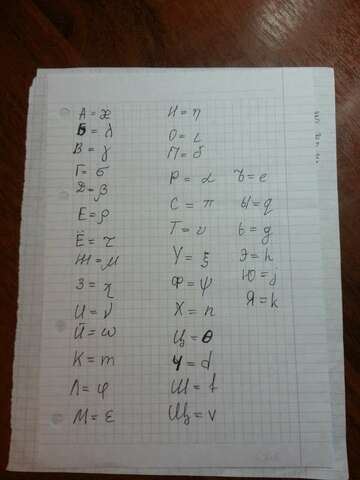 А = x
Б = λ
В = γ
Г = σ
Д = β
Е = ρ
Ё = τ
Ж = μ
З = η
И = ν
Й = ω
К = m
Л = φ
М = ε
Н = η
О = ι
П = δ
Р = α
С = π
Т = υ
У = ξ
Ф = ψ
Х = n
Ц = θ
Ч = d
Ш = t
Щ = v
Ъ = e
Ы = q
Ь = g
Э = h
Ю = j
Я = k